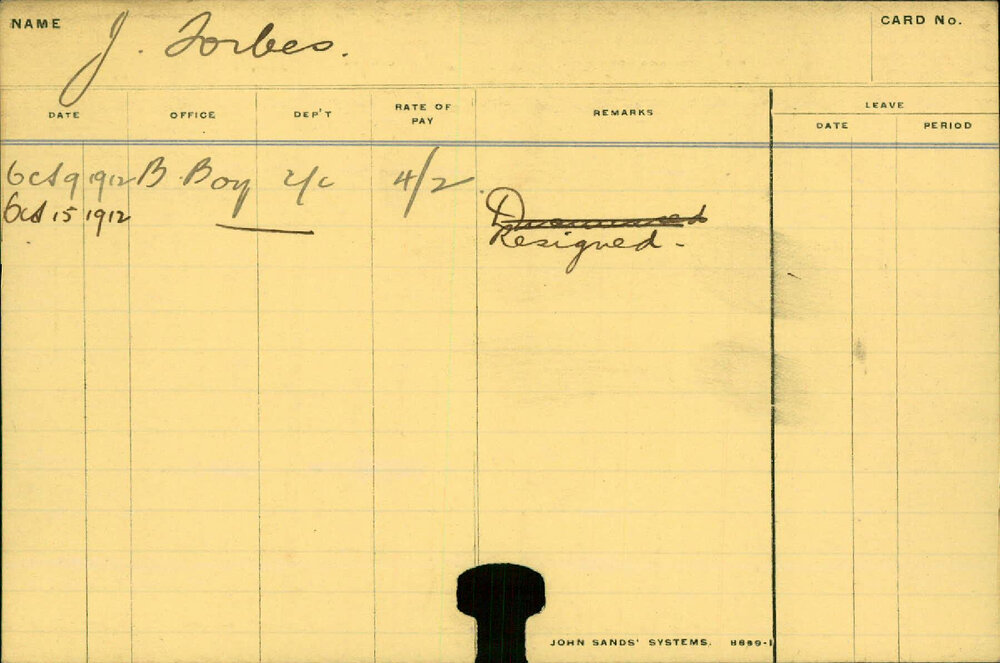 NAME J. Forbes. CARD No.
DATE OFFICE DEP'T RATE OF PAY REMARKS LEAVE
DATE PERIOD
Oct 9 1912 B. Boy 4/2
Oct 15 1912
Resigned.-
JOHN SANDS' SYSTEMS. 8889-1